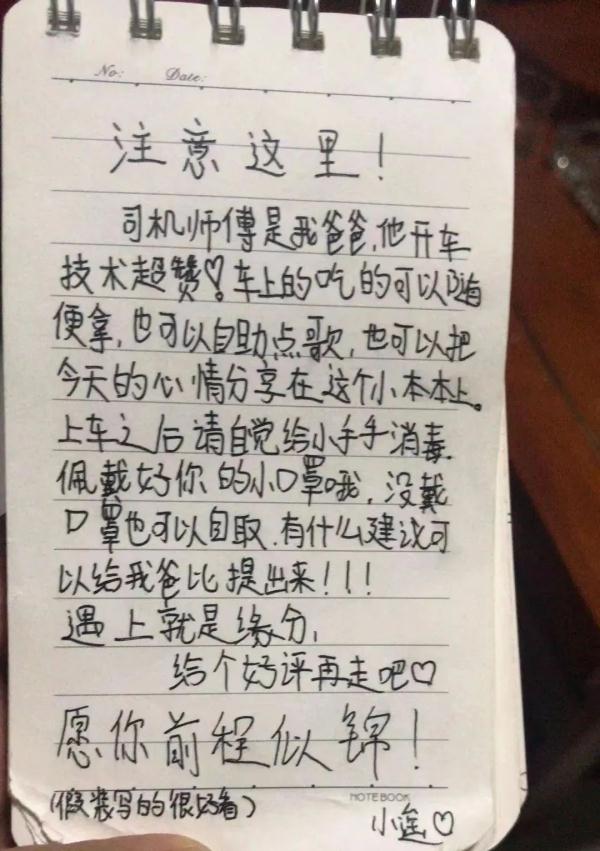 No: Date:
注意这里!
司机师傅是我爸爸,他开车
技术超赞♡。车上的吃的可以随
便拿,也可以自助点歌,也可以把
今天的心情分享在这个小本本上。
上车之后请自觉给小手手消毒.
佩戴好你的小口罩哦,没戴
口罩也可以自取.有什么建议可
以给我爸比提出来!!!
遇上就是缘分,
给个好评再走吧♡
愿你前程似锦!
(假装写的很好看)
NOTEBOOK
小遥♡